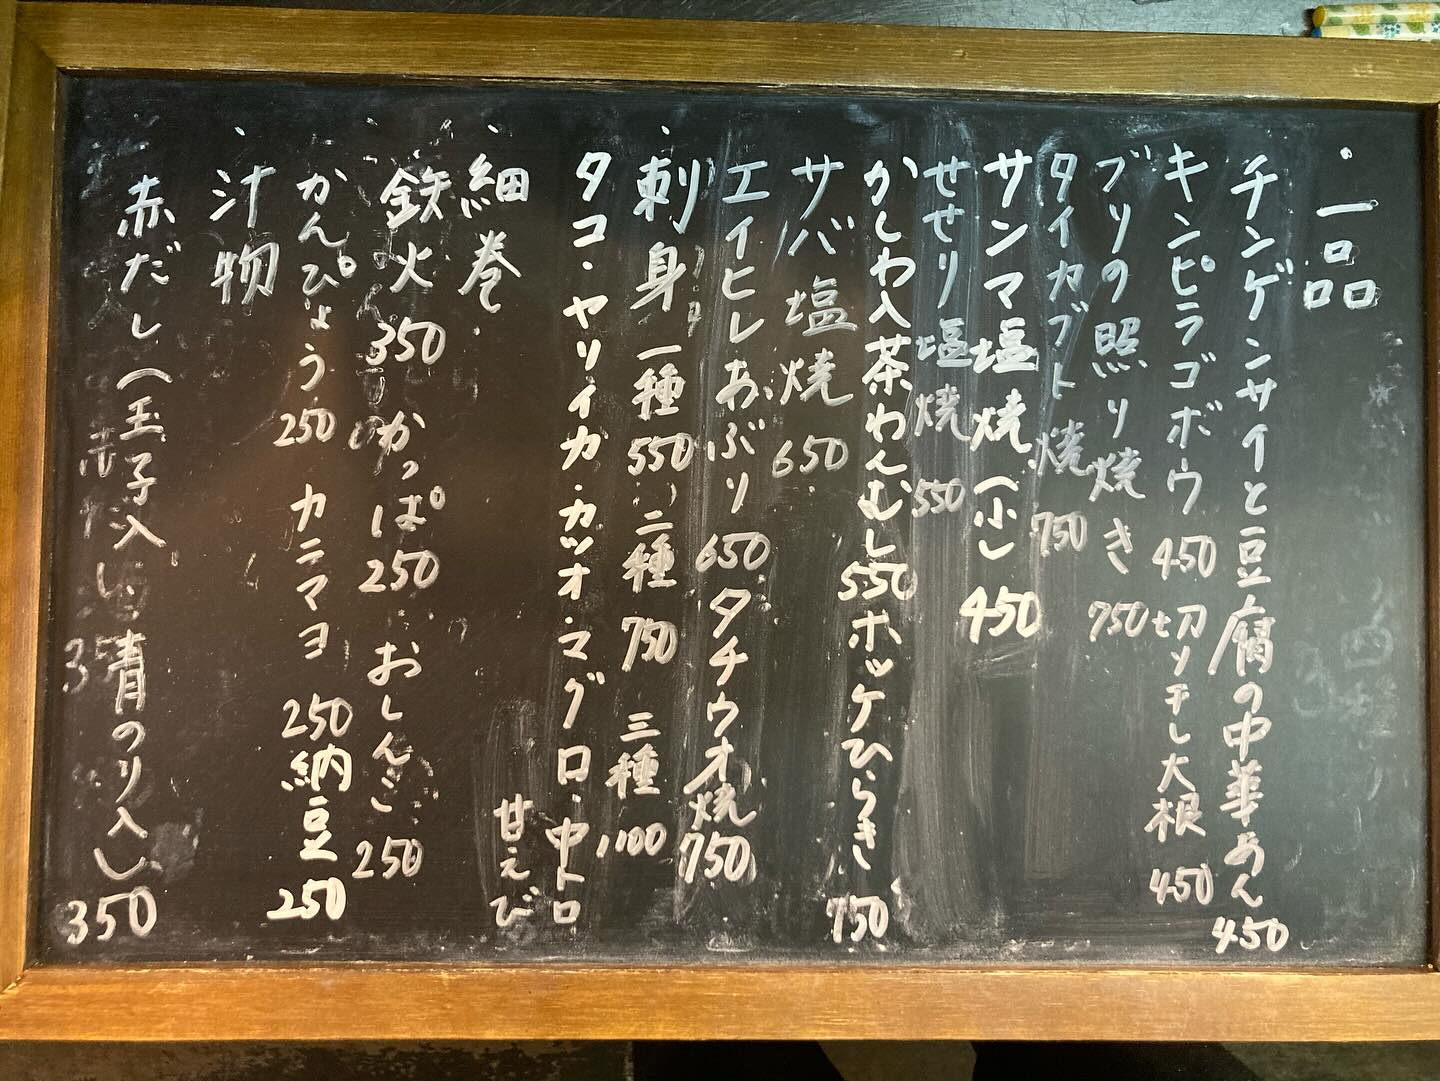 ・一品
チンゲンサイと豆腐の中華あん 450
キンピラゴボウ 450 切り干し大根 450
ブリの照り焼き 750
タイカブト焼 750
サンマ塩焼(小) 450
せせり塩焼 550
かしわ入茶わんむし 550 ホッケひらき 750
サバ塩焼 650
エイヒレあぶり 650 タチウオ焼 750
・刺身 一種 550 二種 750 三種 1100
タコ・ヤリイカ・カツオ・マグロ・中トロ
甘えび
・細巻
鉄火 350 かっぱ 250 おしんこ 250
かんぴょう 250 カニマヨ 250 納豆 250
・汁物
赤だし(玉子入り、青のり入) 350